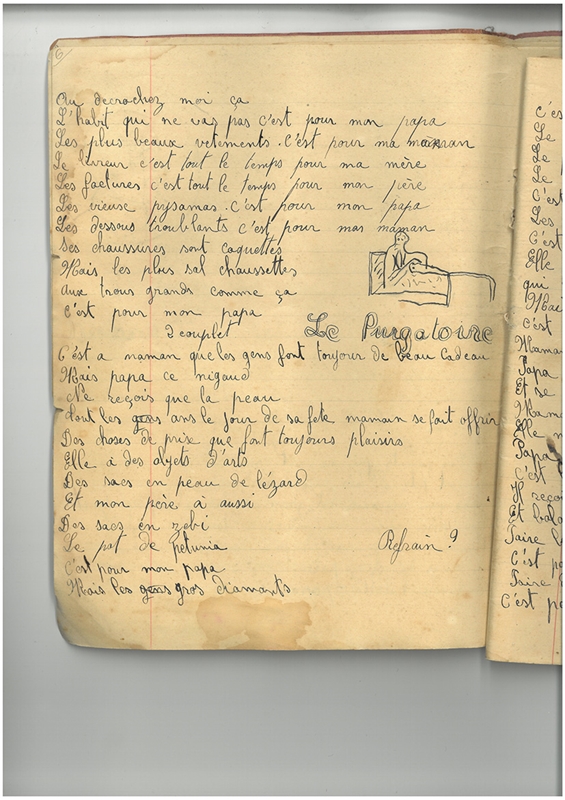 6
Au decrochez moi ça
L'habit qui ne vas pas c'est pour mon papa
Les plus beaux vetements. C'est pour ma maman
Le livreur c'est tout le temps pour ma mère
Les factures c'est tout le temps pour mon père
Les vieuse pysamas. c'est pour mon papa
Les dessous troublants c'est pour mas maman
Ses chaussures sont coquettes
Mais les plus sal chaussettes
Aux trous grands comme ça
C'est pour mon papa
2 couplet
Le Purgatoire
C'est a maman que les gens font toujour de beau cadeau
Mais papa ce nigaud
Ne reçois que la peau
tout les gens ans le jour de sa fete maman se fait offrir
Des choses de prix que font toujours plaisirs
Elle à des objets d'arts
Des sacs en peau de lézard
Et mon père à aussi
Des sacs en zebi
Le pot de petunia
Refrain ?
C'est pour mon papa
Mais les gens gros diamants
c'es
Le
Le
Le
C'est
Les
C'est
Elle
qui
Mai
c'est
Mama
Papa
Et se
Mama
Elle n
Papa
C'est
Il reço
Et bala
Faire l
C'est p
Faire
C'est po